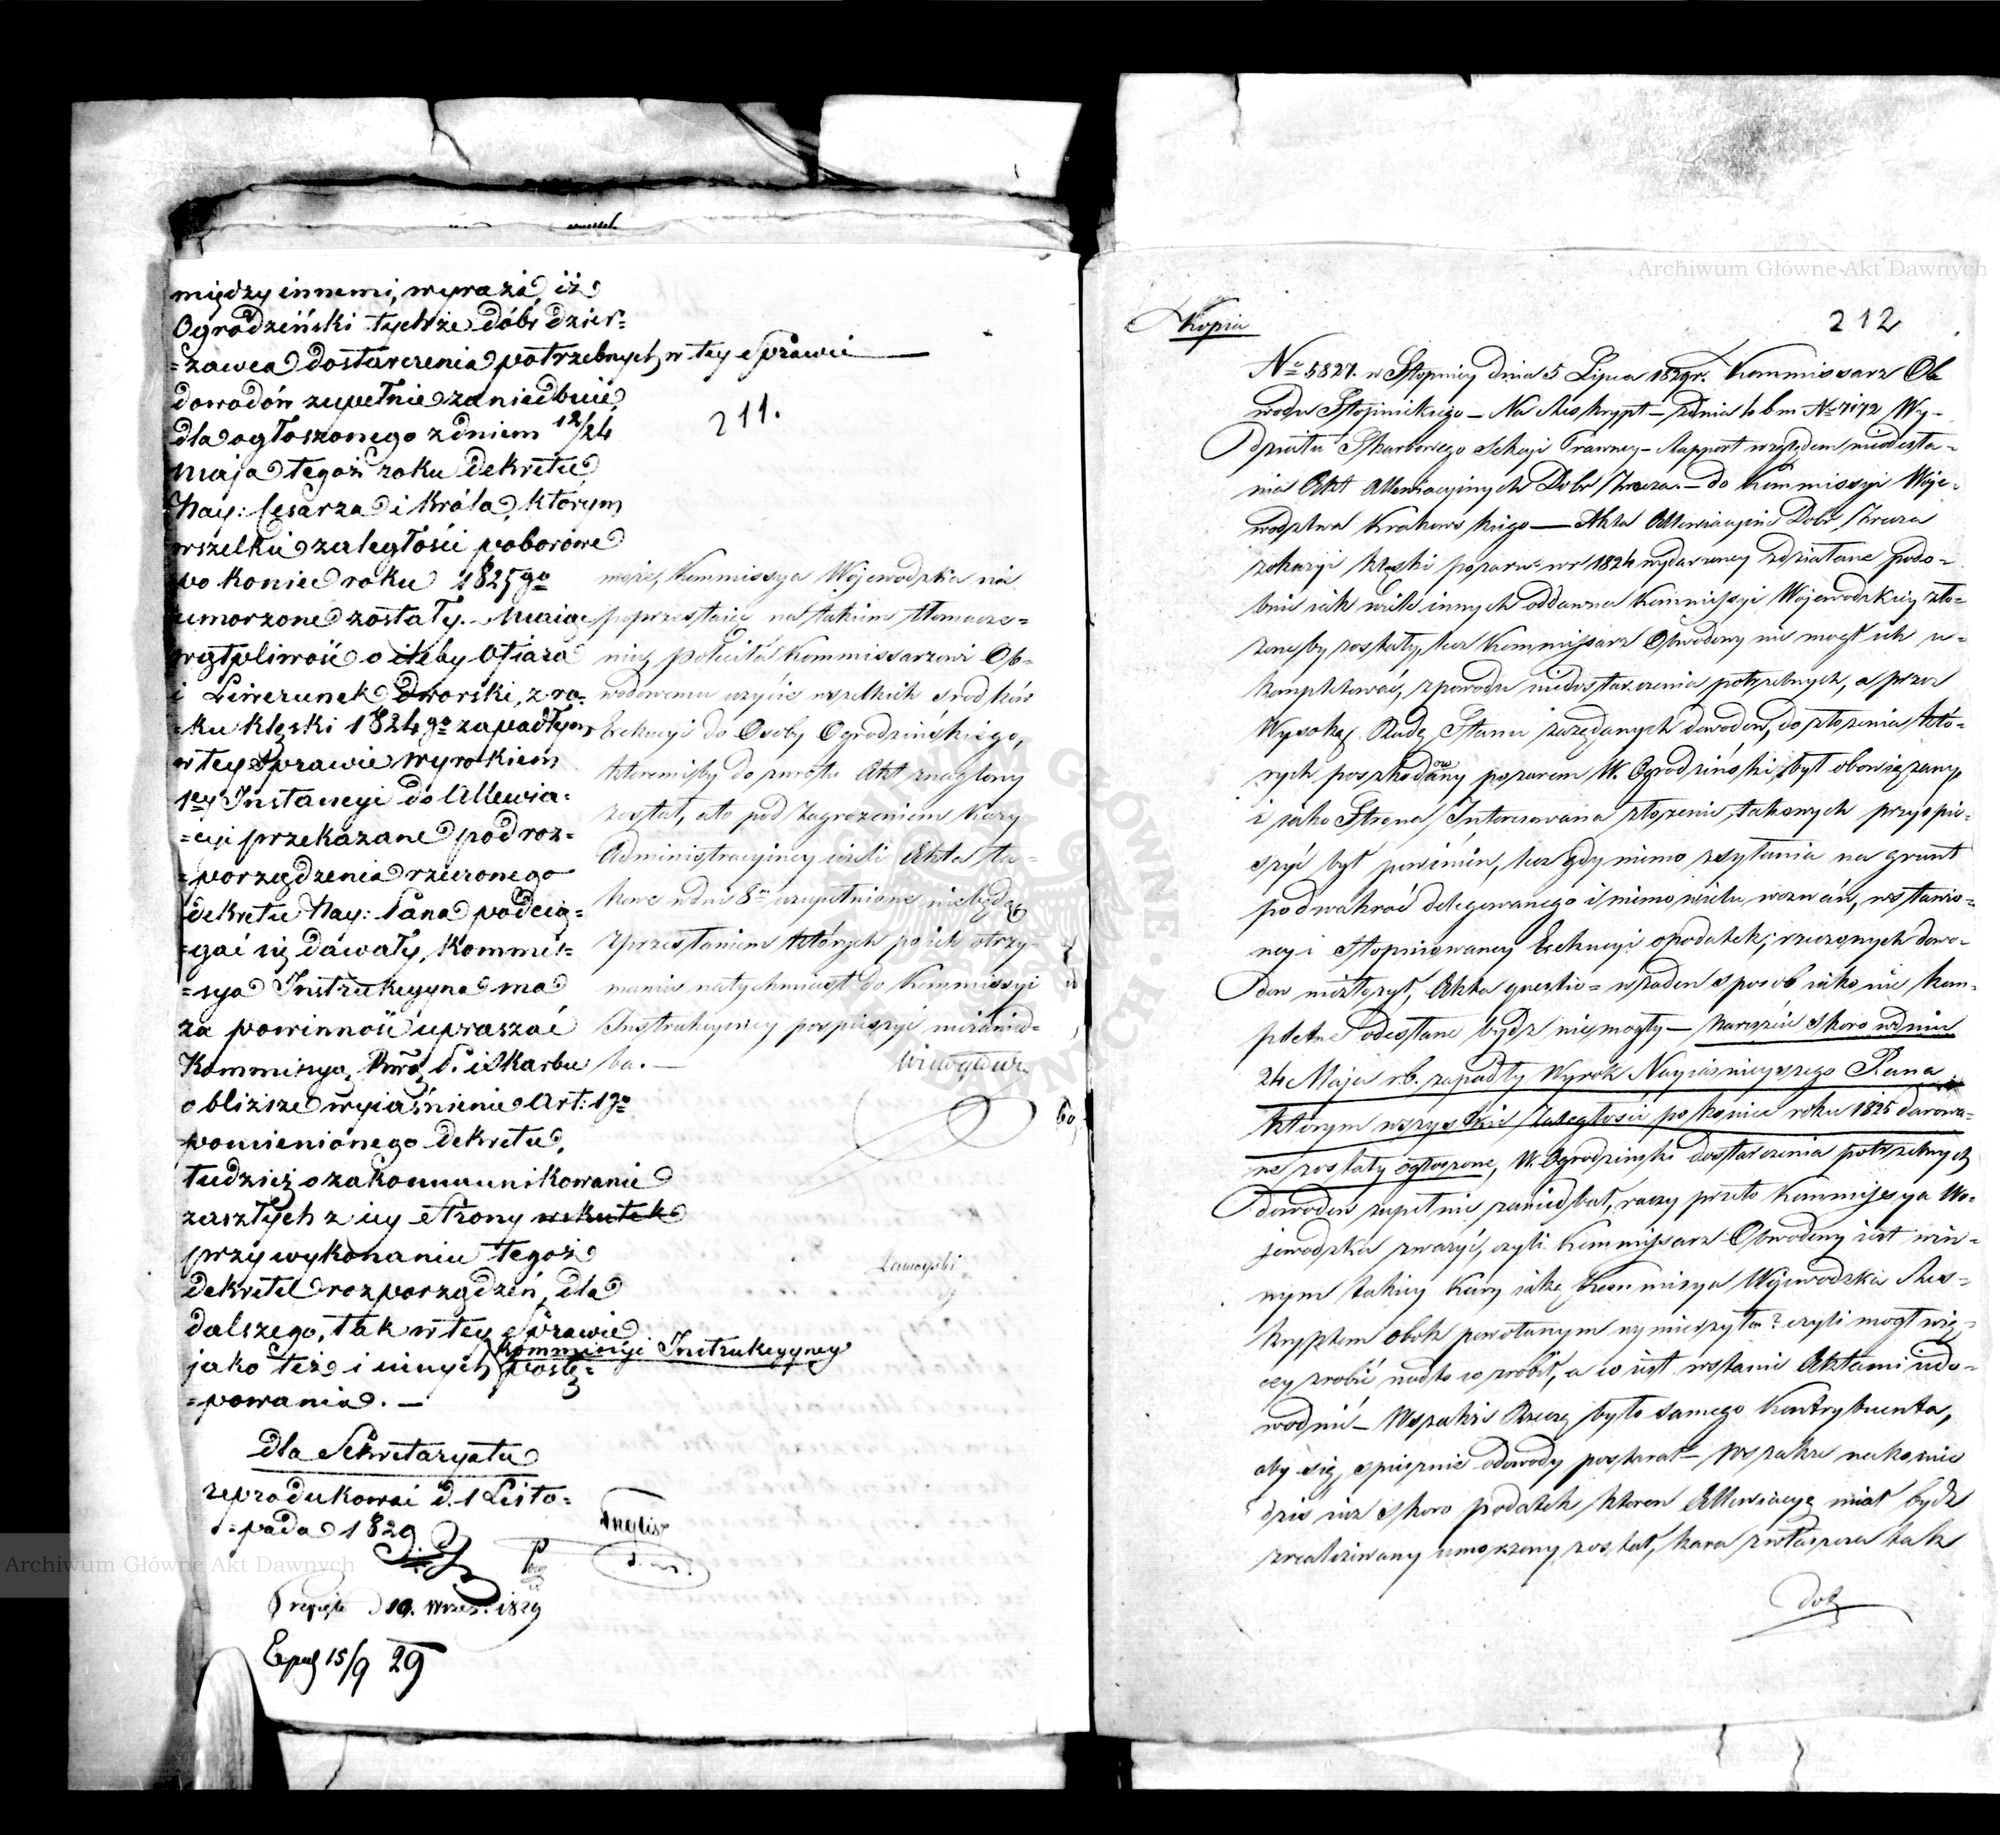 między innemi, wyraża, iż
Ogrodzeński tychże dóbr dzier=
=zawca dostarczenia potrzebnych w tey sprawie —
dowodów zupełnie zaniedbuie,
dla ogłoszonego z dniem 12/24
Maja tegoż roku dekretu
Nay: Cesarza i Króla, którym
wszelkie zaległości poborowe
po koniec roku 1825go
umorzone zostały. Maiąc
wątpliwość o ile by Ofiara
i Liwerunek Dworski, z ro-
=ku klęski 1824go zapadłym
w tey sprawie wyrokiem
1ey Instancyi do Allewia-
=cyi przekazane pod roz=
=porządzenia rzeczonego
dekretu Nay: Pana podcią=
=gać się dawały, Kommis=
=sya Instrukcyyna ma
za powinność upraszać
Kommissyą Rwą P. i Skarbu
o bliższe wyiaśnienie Art: 1go
pomienionego dekretu,
tudzież o zakommunikowanie
zaszłych z iey strony wskutek
przy wykonaniu tegoż
dekretu rozporządzeń, dla
dalszego, tak w tey sprawie
Kommissyi Instrukcyyney
jako też i innych postę=
=powania. —
dla Sekretaryatu
reprodukować d. 1 Listo=
=pada 1829
d 10. Wrześ: 1829
Exp 15/9 29
211.
może, Kommissya Wojewodzka nie
poprzestaiąc na takim tłomacze=
niu, poleciła Kommissarzowi Ob=
wodowemu użycie wszelkich środków
Exekucyi do Osoby Ogrodzińskiego,
któremiby do zwrotu Akt znaglony
został, a to pod zagrożeniem kary
Administracyiney ieżeli Akta ta=
kowe w dni 8m uzupełnione nie będą,
z przesłaniem których po ich otrzy-
maniu natychmiast do Kommissyi
Instrukcyiney pospieszyć niezanied=
ba. —
Zamoyski
Kopia
212
No 5827. w Stopnicy dnia 5 Lipca 1829r. Kommissarz Ob
wodu Stopnickiego — Na Reskrypt — z dnia b m No 7172 Wy-
działu Skarbowego Sekcyi Prawney — Rapport względem niodesła-
nia Akt Allewiacyinych Dobr — do Kommissyi Woje-
wodztwa Krakowskiego — Akta Allewiacyine Dobr
z okazyi klęski pożaru w r 1824 wydarzoney zdziałane podo=
bnie iak wiele innych oddawna Kommissyi Wojewodzkiey zło=
żoneby zostały, lecz Kommissarz Obwodowy nie mogł ich u-
kompletować, z powodu niedostarczenia potrzebnych, a przez
Wysoką Radę Stanu zażądanych dowodow, do złożenia któ-
rych poszkodowany pożarem W. Ogrodziński, był obowiązany
i iako Strona Interesowana złożenie takowych przyspie-
szyć był powinien, lecz gdy mimo zsyłania na grunt
podwakroć delegowanego i mimo wielu wezwań, wstawio-
ney i stopniowaney Exekucyi o podatek, rzeczonych dowo-
dow niezłożył, Akta questio= w żaden sposób iako nie kom-
pletne odesłane bydź niemogły — nareszcie skoro w dniu
24 Maja r.b. zapadły Wyrok Nayiaśnieyszego Pana
którym wszystkie zaległości po koniec roku 1825 darowa-
ne zostały ogłoszone, W. Ogrodzinski dostarczenia potrzebnych
dowodow zupełnie zaniedbał, raczy przeto Kommissya Wo-
jewodzka zważyć, czyli Kommissarz Obwodowy iest win=
nym takiey kary iaką Kommissya Wojewodzka Res=
kryptem obok powołanym wymierzyła? czyli mogł wię-
cey zrobić nadto co zrobił, a co iest w stanie Aktami udo-
wodnić — Wszakże Rzeczą było samego Kontrybuenta,
aby się spiesznie o dowody postarał — wszakże nakoniec
dziś iuż skoro podatek ktoren Allewiacyą miał bydź
zrealizowany umorzony został, kara zwłaszcza tak